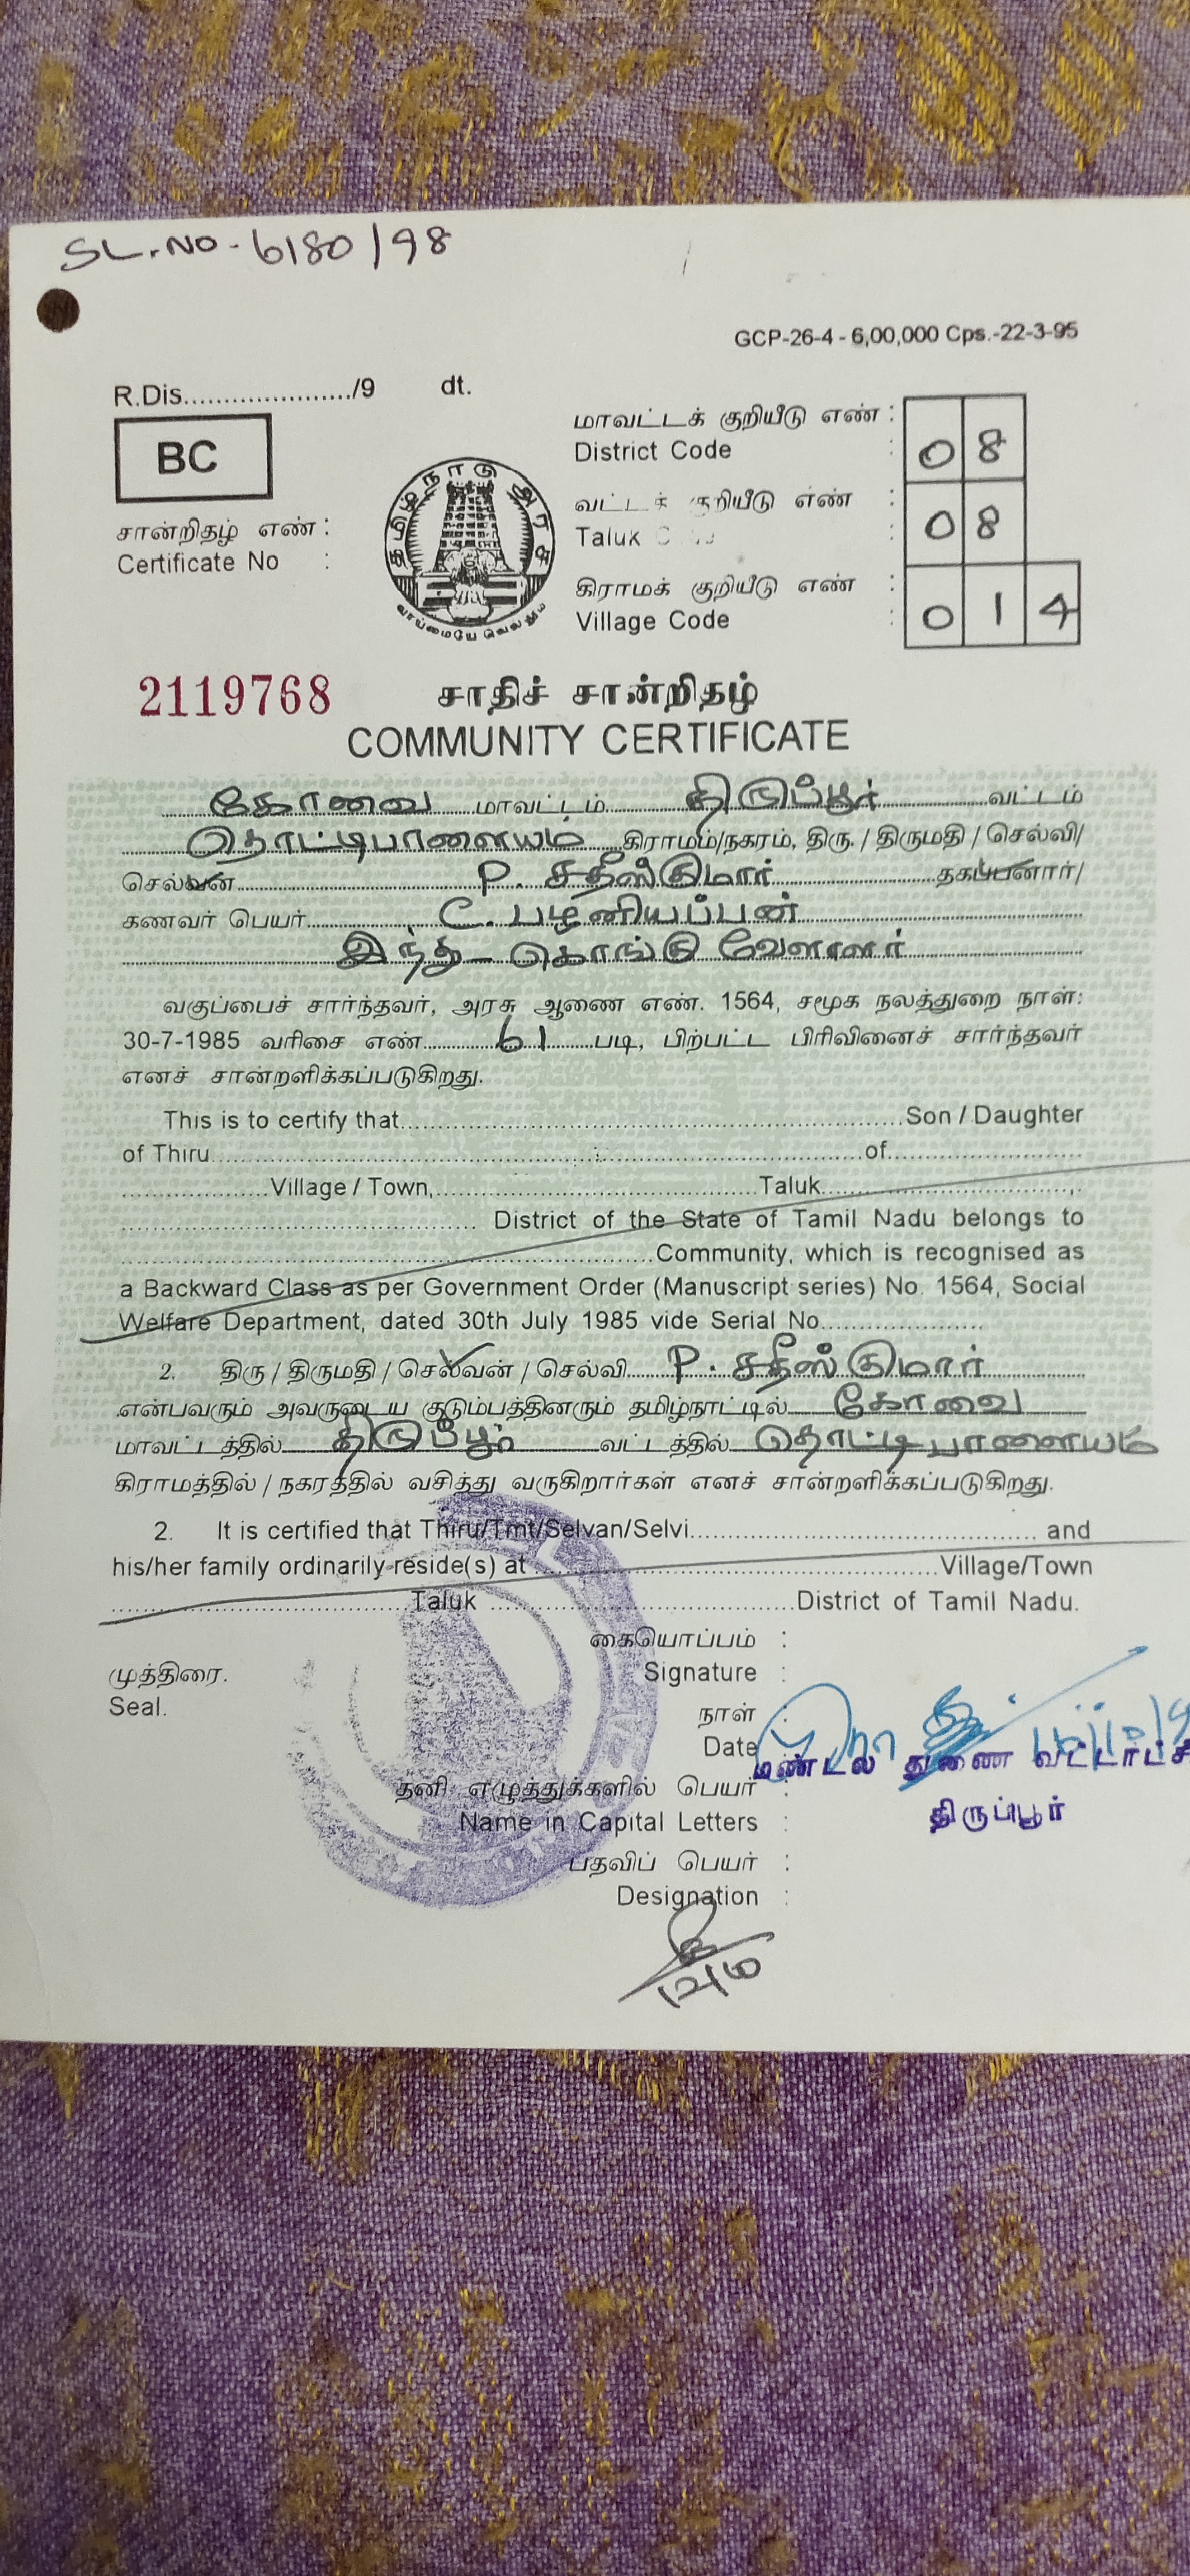 SL.NO - 6180/98
GCP-26-4 - 6,00,000 Cps.-22-3-95
R.Dis....................../9 dt.
BC
தமிழ்நாடு அரசு
வாய்மையே வெல்லும்
மாவட்டக் குறியீடு எண் : 08
District Code :
வட்டக் குறியீடு எண் : 08
Taluk
கிராமக் குறியீடு எண் : 014
Village Code :
சான்றிதழ் எண் :
Certificate No :
2119768
சாதிச் சான்றிதழ்
COMMUNITY CERTIFICATE
கோவை மாவட்டம் திருப்பூர் வட்டம்
தொட்டிபாளையம் கிராமம்/நகரம், திரு. / திருமதி / செல்வி/
செல்வன் P. சதீஸ்குமார் தகப்பனார்/
கணவர் பெயர் C. பழனியப்பன்
இந்து - கொங்கு வேளாளர்
வகுப்பைச் சார்ந்தவர், அரசு ஆணை எண். 1564, சமூக நலத்துறை நாள்:
30-7-1985 வரிசை எண் 61 படி, பிற்பட்ட பிரிவினைச் சார்ந்தவர்
எனச் சான்றளிக்கப்படுகிறது.
This is to certify that........................Son / Daughter
of Thiru........................of........................
........................Village / Town,........................Taluk........................,
........................ District of the State of Tamil Nadu belongs to
........................Community, which is recognised as
a Backward Class as per Government Order (Manuscript series) No. 1564, Social
Welfare Department, dated 30th July 1985 vide Serial No........................
2. திரு / திருமதி / செல்வன் / செல்வி P. சதீஸ்குமார்
என்பவரும் அவருடைய குடும்பத்தினரும் தமிழ்நாட்டில் கோவை
மாவட்டத்தில் திருப்பூர் வட்டத்தில் தொட்டிபாளையம்
கிராமத்தில் / நகரத்தில் வசித்து வருகிறார்கள் எனச் சான்றளிக்கப்படுகிறது.
2. It is certified that Thiru/Tmt/Selvan/Selvi........................ and
his/her family ordinarily reside(s) at ........................Village/Town
........................Taluk ........................District of Tamil Nadu.
கையொப்பம் :
முத்திரை. Signature :
Seal. நாள் :
Date
மண்டல துணை
தனி எழுத்துக்களில் பெயர் :
திருப்பூர்
Name in Capital Letters :
பதவிப் பெயர் :
Designation :